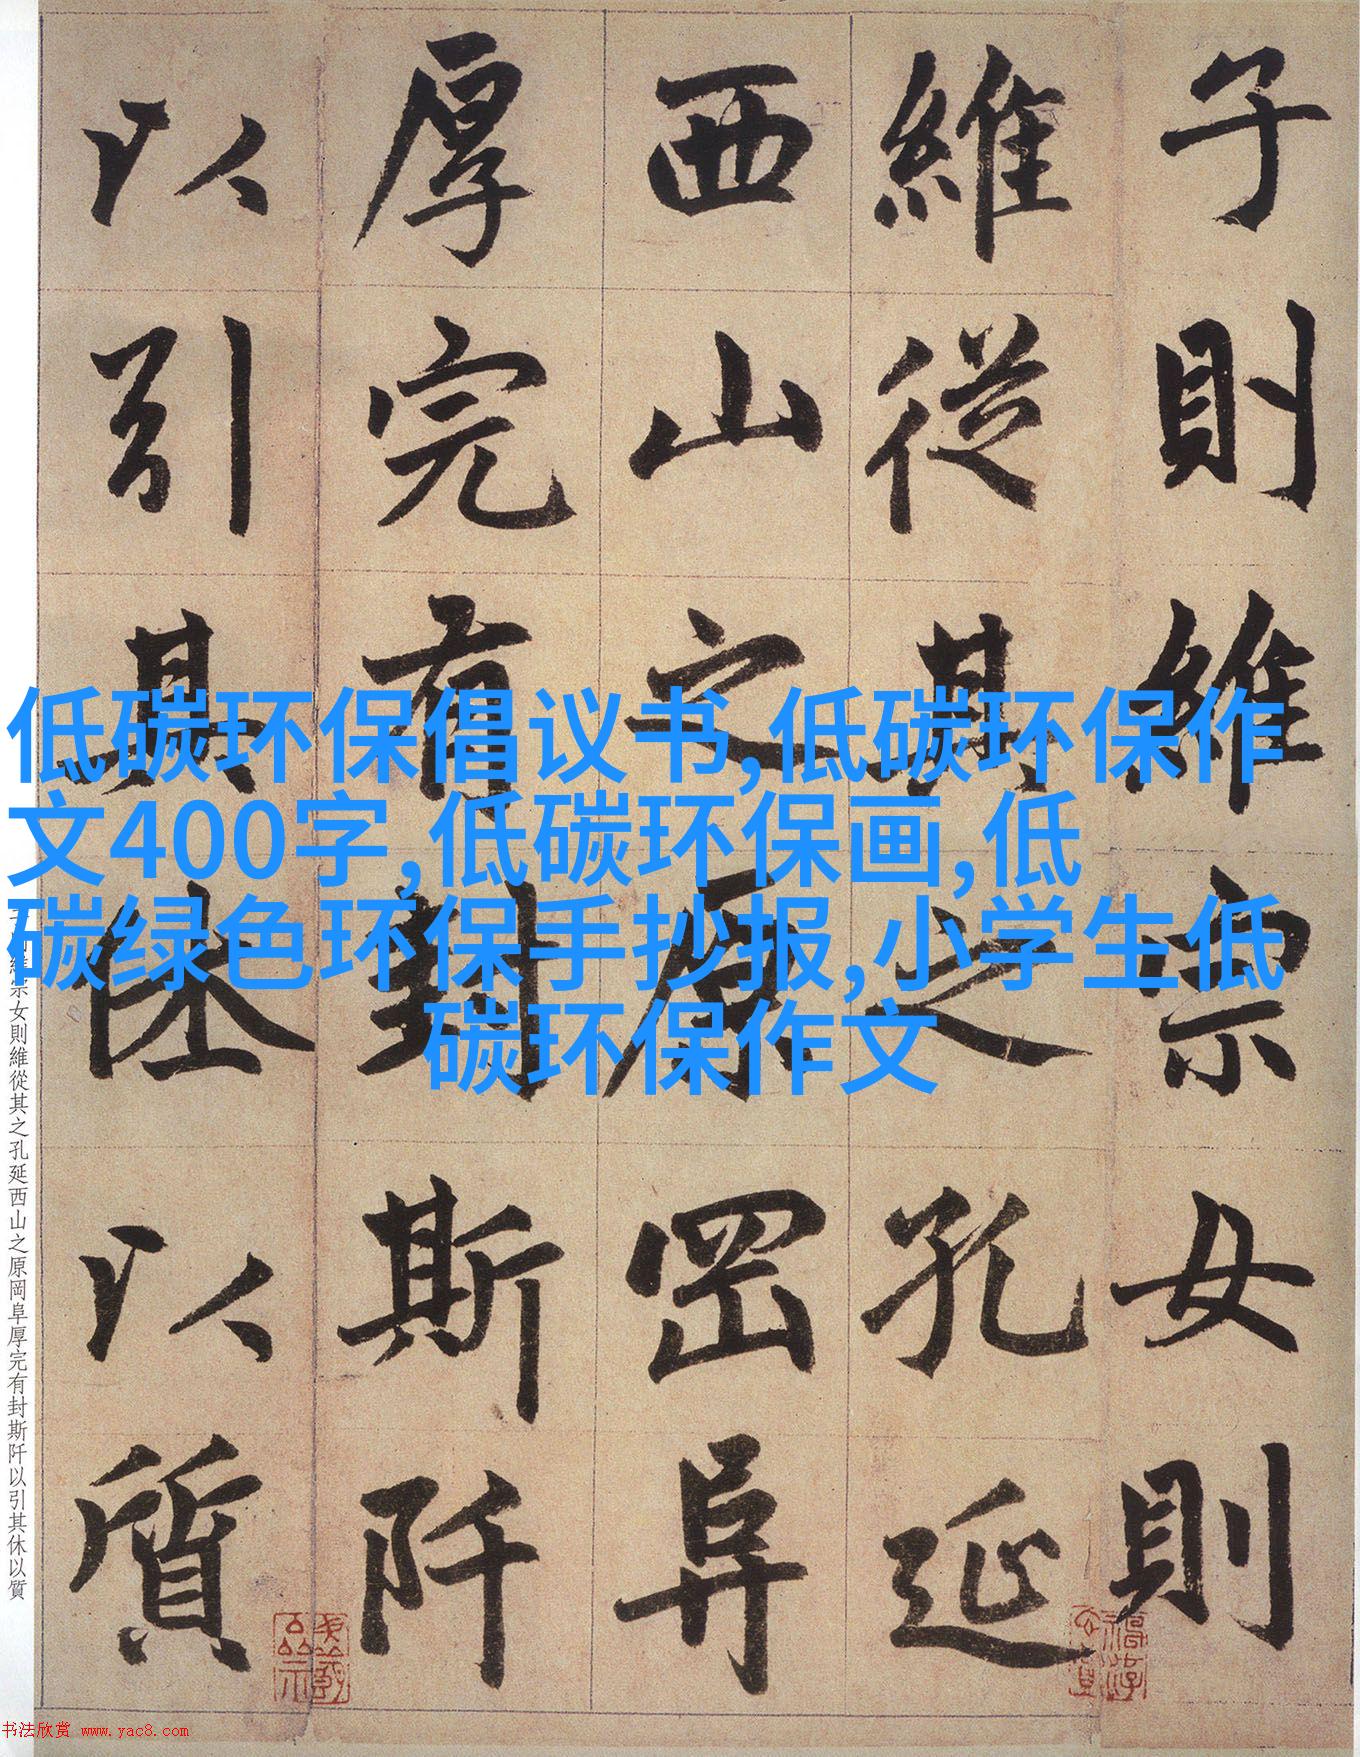 低碳环保倡议书,低碳环保作
文400字,低碳环保画,低
碳绿色环保手抄报,小学生低
碳环保作文
子則維宗女則
維從其之孔延
西山之原岡阜
厚完有封斯阡
以引其休以質
維宗女則維從其之孔延西山之原岡阜厚完有封斯阡以引其休以質
书法欣赏 www.yac8.com